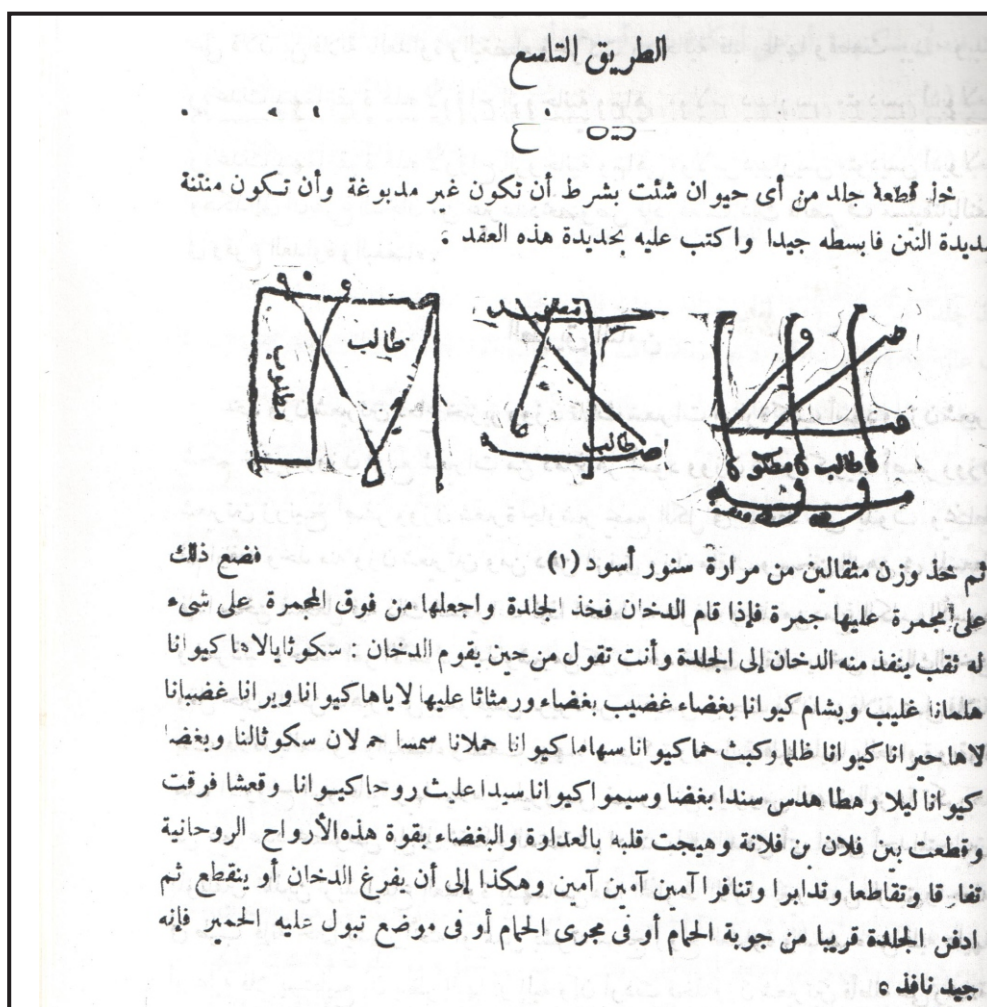 الطريق التاسع
خذ قطعة جلد من أى حيوان شئت بشرط أن تكون غير مدبوغة وأن تكون منتنة
النتن فابسطه جيدا واكتب عليه بحديدة هذه العقد :
طالب
مطلوب
طالب
طالب
ثم خذ وزن مثقالين من مرارة سنور أسود (١) فضع ذلك
على مجمرة عليها جمرة فإذا قام الدخان فخذ الجلدة واجعلها من فوق المجمرة على شىء
له ثقب ينفذ منه الدخان إلى الجلدة وأنت تقول من حين يقوم الدخان : كيوانا
هلمانا غليب وبشام كيوانا بغضاء غضيب بغضاء ورمثاثا عليها لاياها كيوانا وبرانا غضبانا
لاها حيرانا كيوانا ظلما وكبث حما كيوانا سهاما كيوانا حملانا سمسا حملان سكوثالنا وبغضا
كيوانا ليلا وهطا هدس سندا بغضا وسيموا كيوانا سبدا عليث روحا كيوانا وقعشا فرقت
وقطعت بين فلان بن فلانة وهيجت قلبه بالعداوة والبغضاء بقوة هذه الأرواح الروحانية
تفارقا وتقاطعا وتدابرا وتنافرا آمين آمين آمين وهكذا إلى أن يفرغ الدخان أو ينقطع ثم
ادفن الجلدة قريبا من جوبة الحمام أو فى مجرى الحمام أو فى موضع تبول عليه الحمير فإنه
جيد نافذ